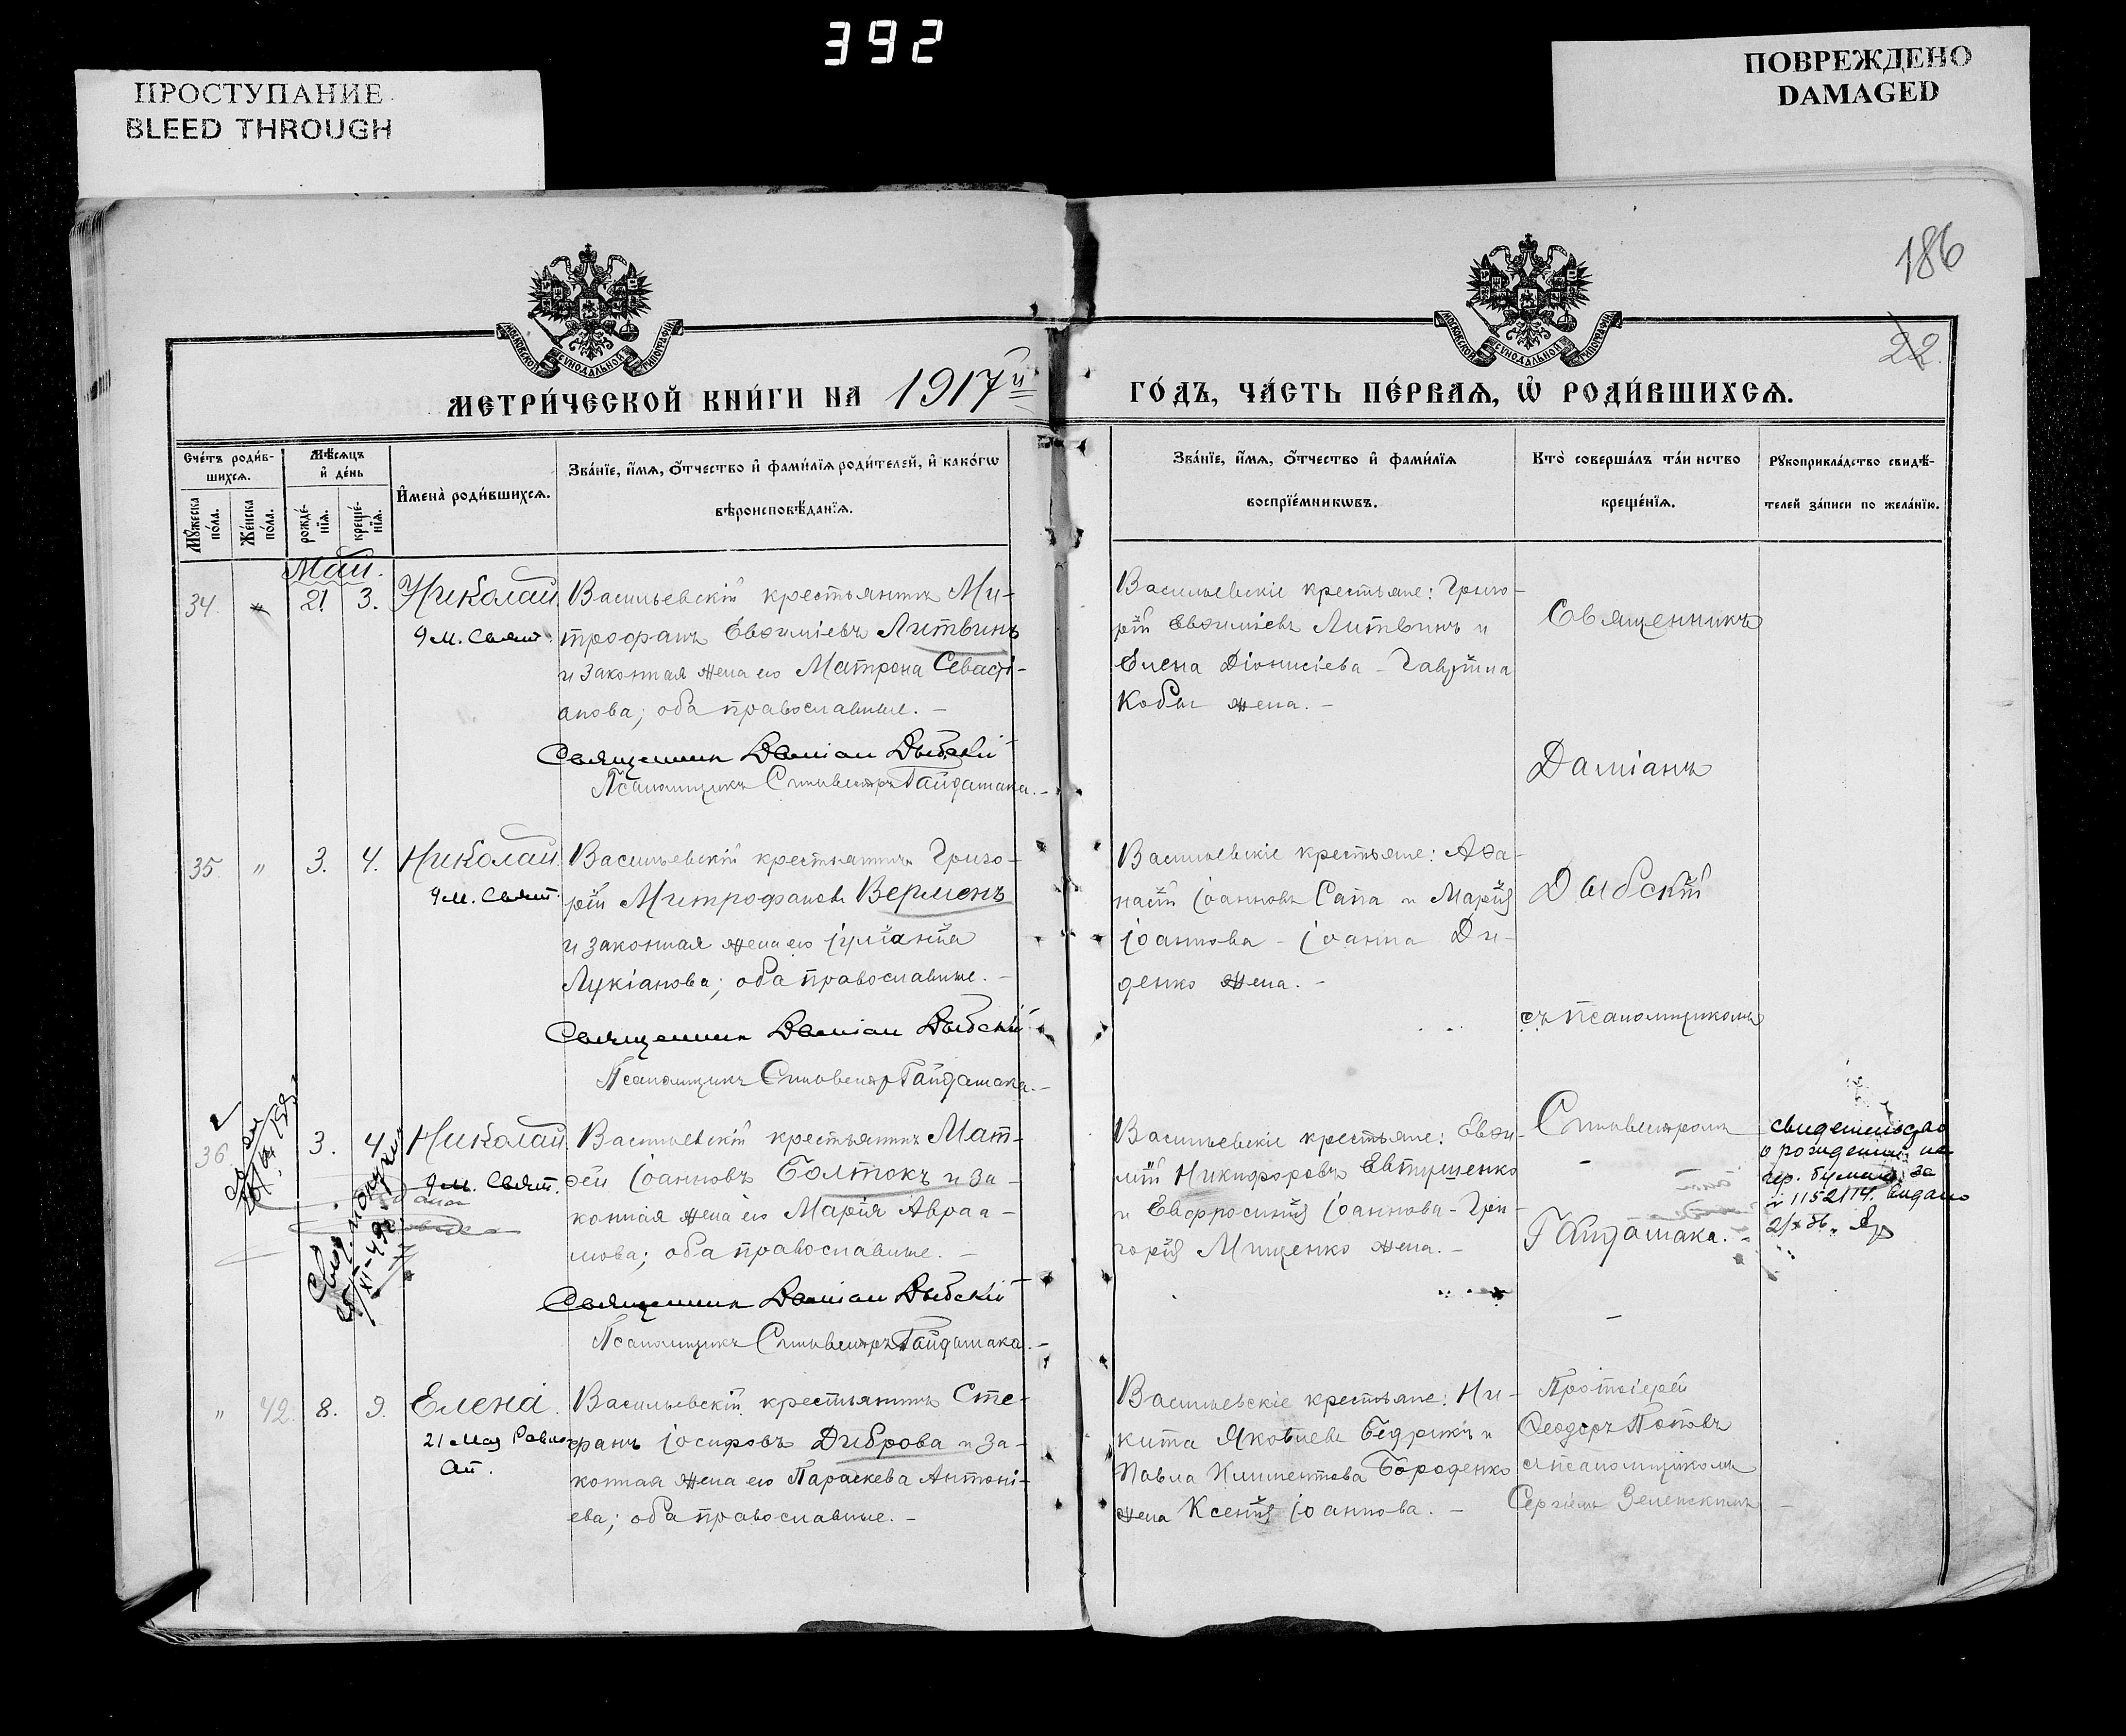 392
ПРОСТУПАНИЕ
BLEED THROUGH
ПОВРЕЖДЕНО
DAMAGED
186
22
МОСКОВСКОЙ СѴНОДАЛЬНОЙ ТИПОГРАФIИ
МОСКОВСКОЙ СѴНОДАЛЬНОЙ ТИПОГРАФIИ
МЕТРИ́ЧЕСКОЙ КНИ́ГИ НА 1917й
ГО́ДЪ, ЧА́СТЬ ПЕ́РВАѦ, Ѡ҆ РОДИ́ВШИХСѦ.
Сче́тъ роди́в-
шихсѧ.
Мꙋ́жеска
по́ла.
Же́нска
по́ла.
Мѣ́сѧцъ
и҆ де́нь
рожде́-
нїѧ.
креще́-
нїѧ.
И҆мена̀ роди́вшихсѧ.
Зва́нїе, и҆́мѧ, ѻ҆́тчество и҆ фами́лїѧ роди́телей, и҆ како́гѡ
вѣроисповѣ́данїѧ.
Зва́нїе, и҆́мѧ, ѻ҆́тчество и҆ фами́лїѧ
воспрїе́мникѡвъ.
Кто̀ соверша́лъ та́инство
креще́нїѧ.
Рꙋкоприкла́дство свидѣ́-
телей за́писи по жела́нїю.
Май.
34. " 21 3. Николай
9 м. Свят.
Васильевскій крестьянинъ Ми-
трофанъ Евѳиміевъ Литвинъ
и законная жена его Матрона Севасті-
анова; оба православные. –
Священник Дамиан Дыбскій
Псаломщикъ Сильвестръ Гайдашака. –
Васильевскіе крестьяне: Григо-
рій Евѳиміевъ Литвинъ и
Елена Діонисіева – Гавріила
Кобы жена. –
Священникъ
Даміанъ
35. " 3. 4. Николай
9 м. Свят.
Васильевскій крестьянинъ Григо-
рій Митрофановъ Верменъ
и законная жена его Іуліанія
Лукіанова; оба православные. –
Священник Дамиан Дыбскій
Псаломщикъ Сильвестръ Гайдашака. –
Васильевскіе крестьяне: Аѳа-
насій Іоанновъ Сапа и Марія
Іоаннова – Іоанна Ди-
денко жена. –
Дыбскій
съ псаломщикомъ
36. 3. 4. Николай
9 м. Свят.
Васильевскій крестьянинъ Мат-
ѳей Іоанновъ Болтокъ и за-
конная жена его Марія Авраа-
мова; оба православные. –
Священник Дамиан Дыбскій
Псаломщикъ Сильвестръ Гайдашака. –
Васильевскіе крестьяне: Евѳи-
мій Никифоровъ Евтушенко
и Евфросинія Іоаннова – Гри-
горія Мищенко жена. –
Сильвестромъ
Гайдашака. –
свидетельство
о рождении на
гер. бумаге за
н 1152114. выдано
" 42. 8. 9. Елена
21 Мая Равно
ап.
Васильевскій крестьянинъ Сте-
фанъ Іосифовъ Диброва и за-
конная жена его Параскева Антоні-
ева; оба православные. –
Васильевскіе крестьяне: Ни-
кита Яковлевъ Бедрикъ и
Павла Климентова Бороденко
жена Ксенія Іоаннова. –
Протоіерей
Ѳеодоръ Поповъ
съ псаломщикомъ
Сергіемъ Зеленскимъ –